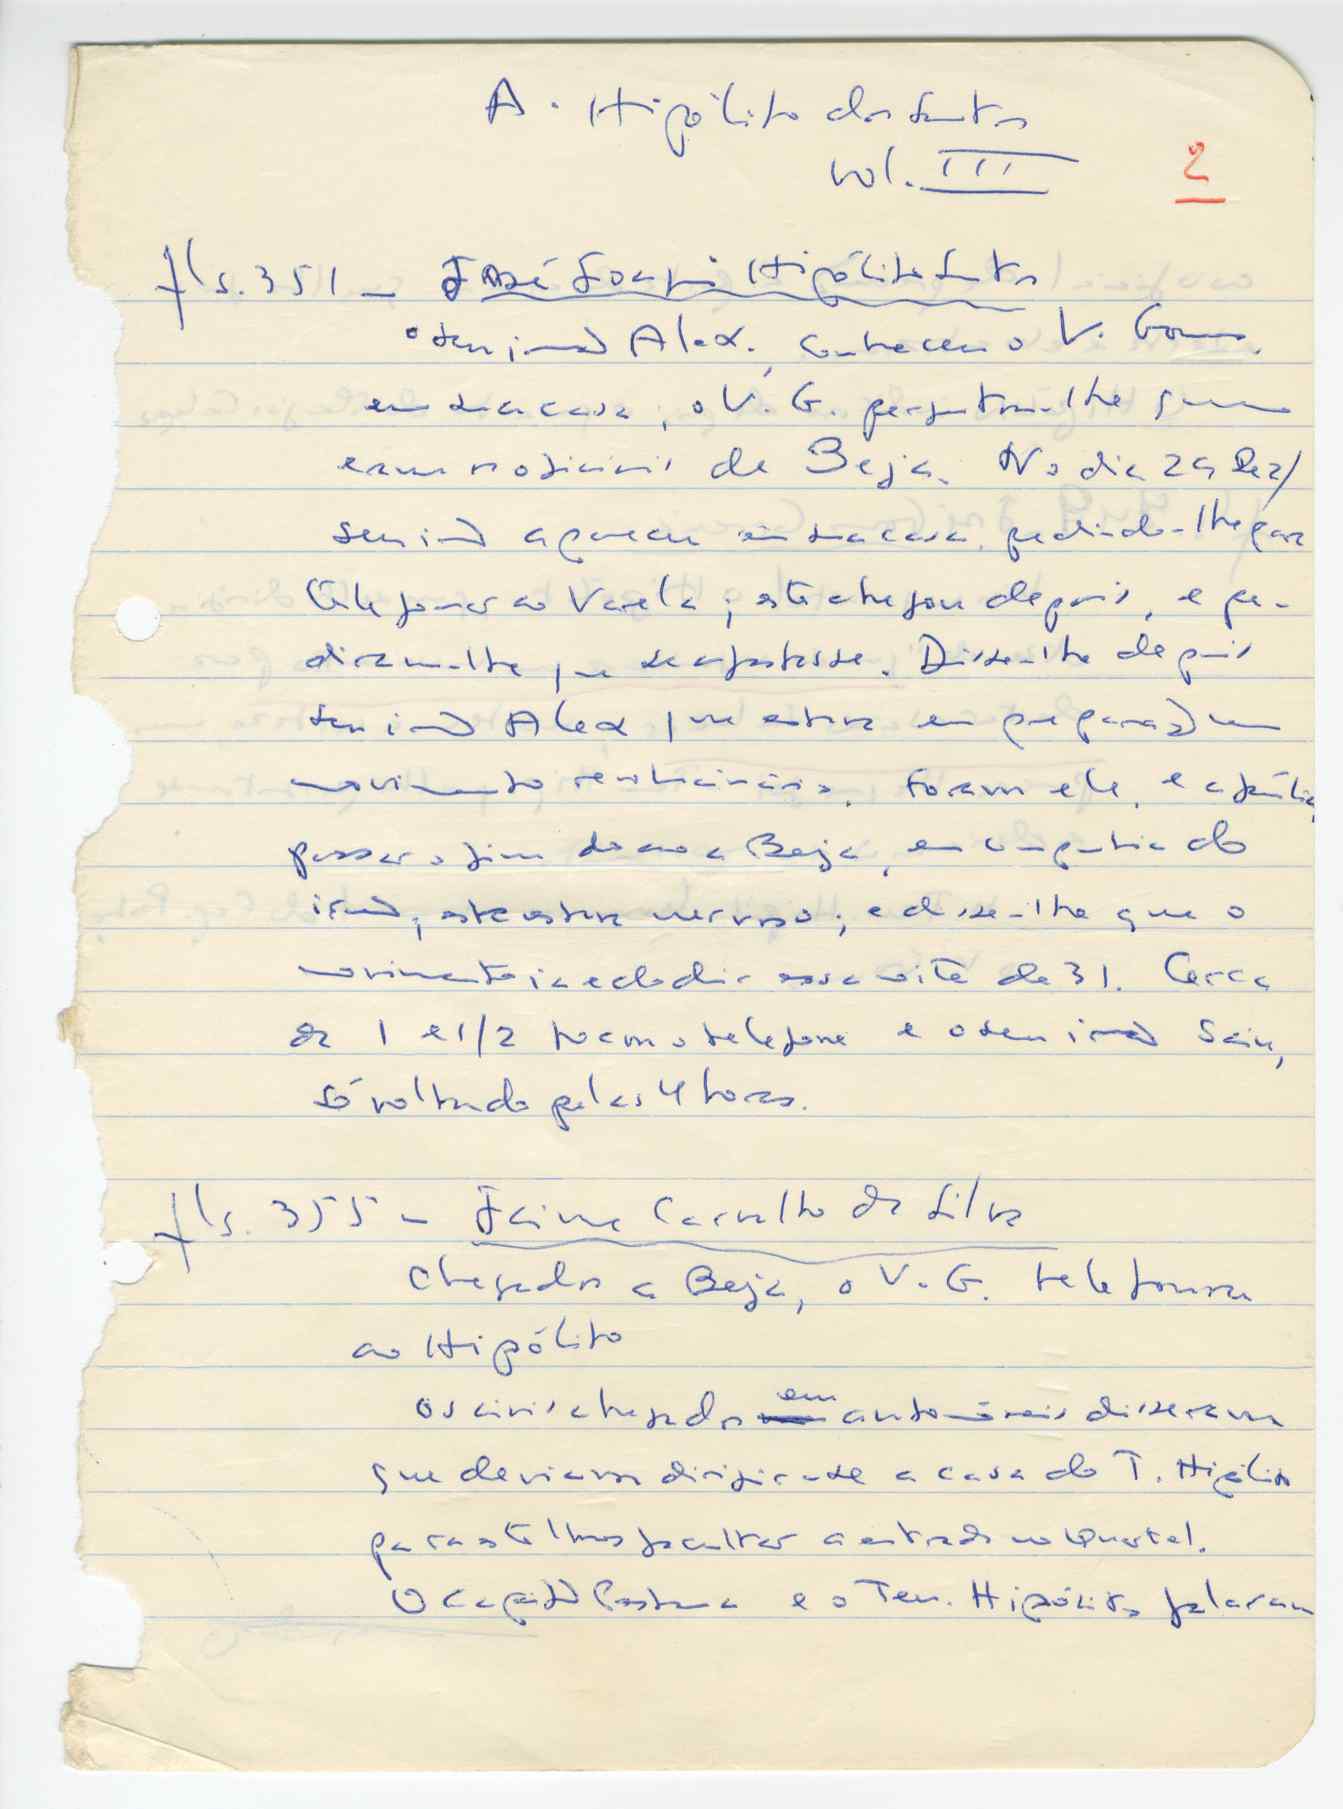 A. Hipólito dos Santos
vol. III
2
fls. 351 - José Joaqui Hipólito Santos
o seu irmão Alex. conheceu o V. Gomes
em sua casa, o V. G. perguntou-lhe quem
eram oficiais de Beja. No dia 29 Dez/
seu irmão aparece em sua casa, pedindo-lhe para
telefonar ao Varela; este chegou depois, e pe-
diram-lhe que se afastasse. Disse-lhe depois
seu irmão Alex que estava em preparação um
movimento revolucionário. Foram ele, e a família,
passar o fim do ano a Beja, em companhia do
irmão; este estava nervoso; e disse-lhe que o
movimento ia eclodir essa noite de 31. Cerca
da 1 e 1/2 tocou o telefone e o seu irmão saiu,
só voltando pelas 4 horas.
fls. 355 - Jaime Carvalho da Silva
Chegados a Beja, o V. G. telefonou
ao Hipólito
os civis chegados em automóveis disseram
que deviam dirigir-se a casa do T. Hipólito
para este lhes facultar a entrada no Quartel.
O capitão Pestana e o Ten. Hipólito falaram